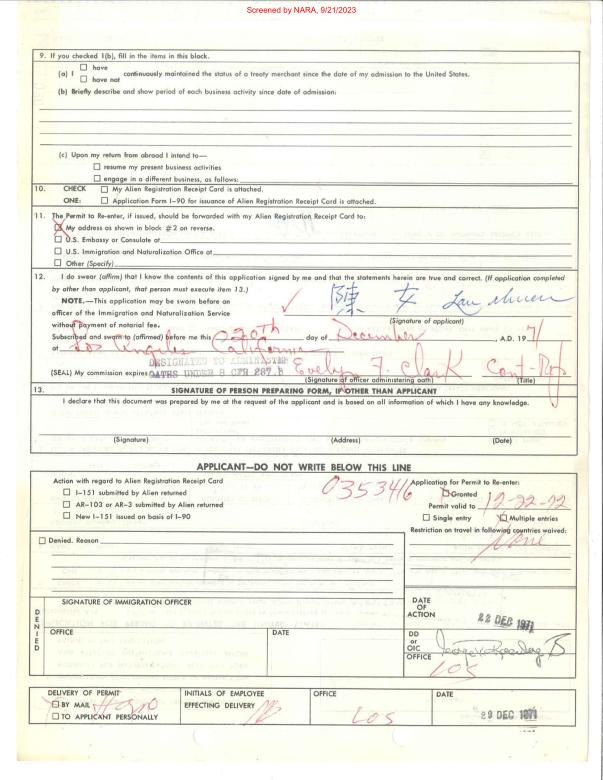 Screened by NARA, 9/21/2023
9. If you checked 1(b), fill in the items in this block.
(a) I ☐ have
☐ have not continuously maintained the status of a treaty merchant since the date of my admission to the United States.
(b) Briefly describe and show period of each business activity since date of admission:
(c) Upon my return from abroad I intend to—
☐ resume my present business activities
☐ engage in a different business, as follows:
10. CHECK ☐ My Alien Registration Receipt Card is attached.
ONE: ☐ Application Form I-90 for issuance of Alien Registration Receipt Card is attached.
11. The Permit to Re-enter, if issued, should be forwarded with my Alien Registration Receipt Card to:
☒ My address as shown in block #2 on reverse.
☐ U.S. Embassy or Consulate at
☐ U.S. Immigration and Naturalization Office at
☐ Other (Specify)
12. I do swear (affirm) that I know the contents of this application signed by me and that the statements herein are true and correct. (If application completed
by other than applicant, that person must execute item 13.)
NOTE.—This application may be sworn before an
officer of the Immigration and Naturalization Service
without payment of notarial fee.
陳 女
(Signature of applicant)
Subscribed and sworn to (affirmed) before me this 20th day of December, A.D. 1971
at Los Angeles California
DESIGNATED TO ADMINISTER
(SEAL) My commission expires OATHS UNDER 8 CFR 287.5 Evelyn F. Clark Cont-Rep
(Signature of officer administering oath) (Title)
13. SIGNATURE OF PERSON PREPARING FORM, IF OTHER THAN APPLICANT
I declare that this document was prepared by me at the request of the applicant and is based on all information of which I have any knowledge.
(Signature) (Address) (Date)
APPLICANT—DO NOT WRITE BELOW THIS LINE
Action with regard to Alien Registration Receipt Card
☐ I-151 submitted by Alien returned
☐ AR-103 or AR-3 submitted by Alien returned
☐ New I-151 issued on basis of I-90
035346
Application for Permit to Re-enter:
☒ Granted
Permit valid to 12-22-72
☐ Single entry ☒ Multiple entries
Restriction on travel in following countries waived:
None
☐ Denied. Reason
DENIED
SIGNATURE OF IMMIGRATION OFFICER
OFFICE DATE
DATE
OF
ACTION 22 DEC 1971
DD
or
OIC
OFFICE LOS
DELIVERY OF PERMIT
☒ BY MAIL
☐ TO APPLICANT PERSONALLY
INITIALS OF EMPLOYEE
EFFECTING DELIVERY
OFFICE
LOS
DATE
29 DEC 1971